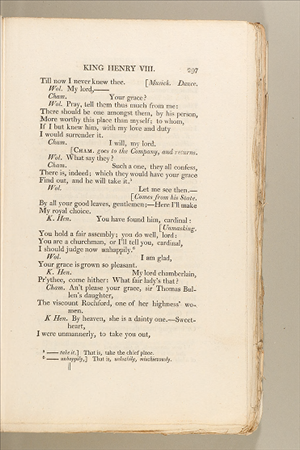 KING HENRY VIII. 297
Till now I never knew thee. [Musick. Dance.
Wol. My lord,——
Cham. Your grace?
Wol. Pray, tell them thus much from me:
There should be one amongst them, by his person,
More worthy this place than myself; to whom,
If I but knew him, with my love and duty
I would surrender it.
Cham. I will, my lord.
[CHAM. goes to the Company, and returns.
Wol. What say they?
Cham. Such a one, they all confess,
There is, indeed; which they would have your grace
Find out, and he will take it.⁵
Wol. Let me see then.—
[Comes from his State.
By all your good leaves, gentlemen;—Here I'll make
My royal choice.
K. Hen. You have found him, cardinal:
[Unmasking.
You hold a fair assembly; you do well, lord:
You are a churchman, or I'll tell you, cardinal,
I should judge now unhappily.⁶
Wol. I am glad,
Your grace is grown so pleasant.
K. Hen. My lord chamberlain,
Pr'ythee, come hither: What fair lady's that?
Cham. An't please your grace, sir Thomas Bul-
len's daughter,
The viscount Rochford, one of her highness' wo-
men.
K Hen. By heaven, she is a dainty one.—Sweet-
heart,
I were unmannerly, to take you out,
⁵ —— take it.] That is, take the chief place.
⁶ —— unhappily,] That is, unluckily, mischievously.